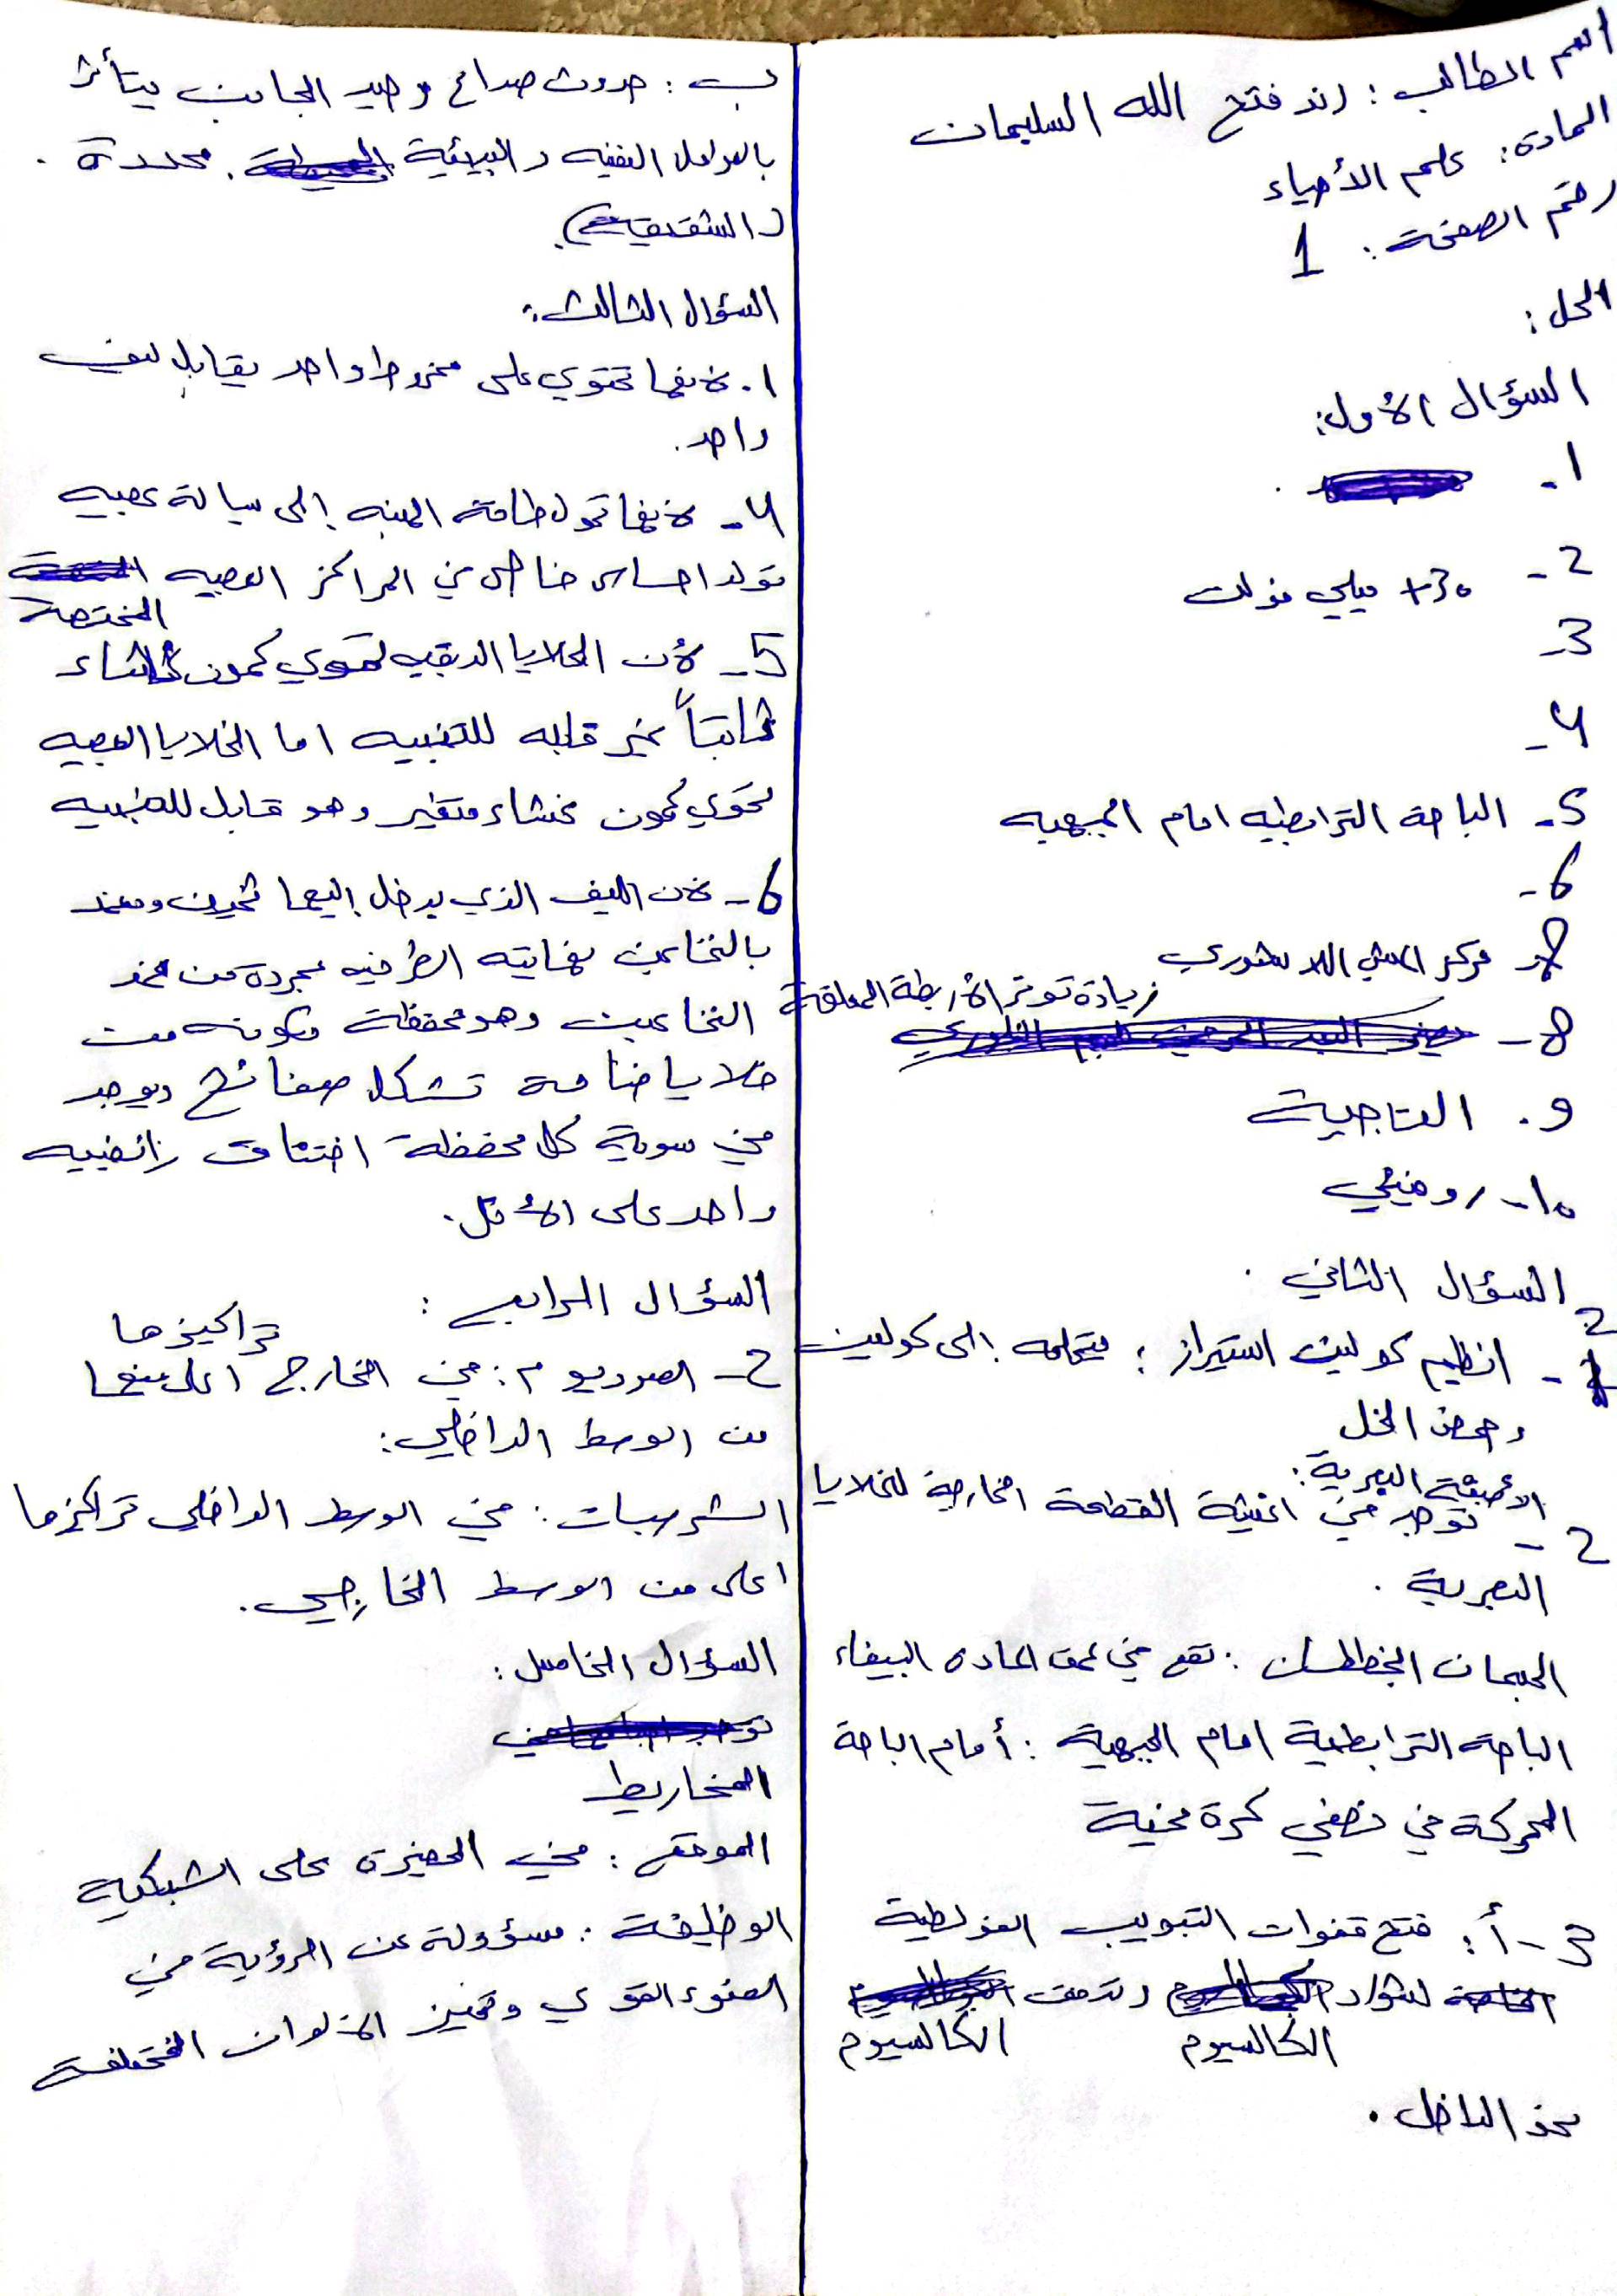 اسم الطالب : رند فتح الله السليمان
المادة : علم الأحياء
رقم الصفحة : 1
الحل :
السؤال الأول :
1 -
2 - +30 ميلي فولت
3 -
4 -
5 - الباحة الترابطيه امام الجبهيه
6 -
7 - مركز المشي اللا شعوري
8 - زيادة توتر الأربطة المعلقة
9 . التاجية
10 - روفيني
السؤال الثاني .
2 - انظيم كولين استيراز : يحلمه إلى كولين
وحمض الخل
2 - الاصبغة البصرية :
توجد في اغشية القطعة الخارجية للخلايا
البصرية .
الجسمان المخططان : تقع في عمق المادة البيضاء
الباحة الترابطية امام الجبهية : أمام الباحة
المحركة في نصفي كرة مخية
3 - أ : فتح قنوات التبويب الفولطية
لشوارد الكالسيوم وتدفق الكالسيوم
نحو الداخل .
ب : حدوث صداع وحيد الجانب يتأثر
بالعوامل النفسيه والبيئية محددة .
( الشقيقة ) .
السؤال الثالث :
1 . لأنها تحتوي على مخروط واحد يقابل ليف
واحد .
4 - لأنها تحول طاقة المنبه إلى سيالة عصبيه
تولد احساس خاص في المراكز العصبيه المختصة
5 - لأن الخلايا الدبقيه تحوي كمون غشاء
ثابتاً غير قابله للتنبيه اما الخلايا العصبيه
تحوي كمون غشاء متغير وهو قابل للتنبيه
6 - لأن الليف الذي يدخل إليها ثخين ومغمد
بالنخاعين نهايته الطرفيه مجردة من غمد
النخاعين وهو محفظة مكونه من
خلايا ضامة تشكل صفائح ويوجد
في سوية كل محفظة اختناق رانفييه
واحد على الأقل .
السؤال الرابع :
2 - الصوديوم : في الخارج تراكيزها اعلى منها
من الوسط الداخلي :
الشرسبات : في الوسط الداخلي تراكيزها
اعلى من الوسط الخارجي .
السؤال الخامس :
المخاريط
الموقع : في الحفيرة على الشبكية
الوظيفة : مسؤولة عن الرؤية في
الضوء القوي وتمييز الألوان المختلفة